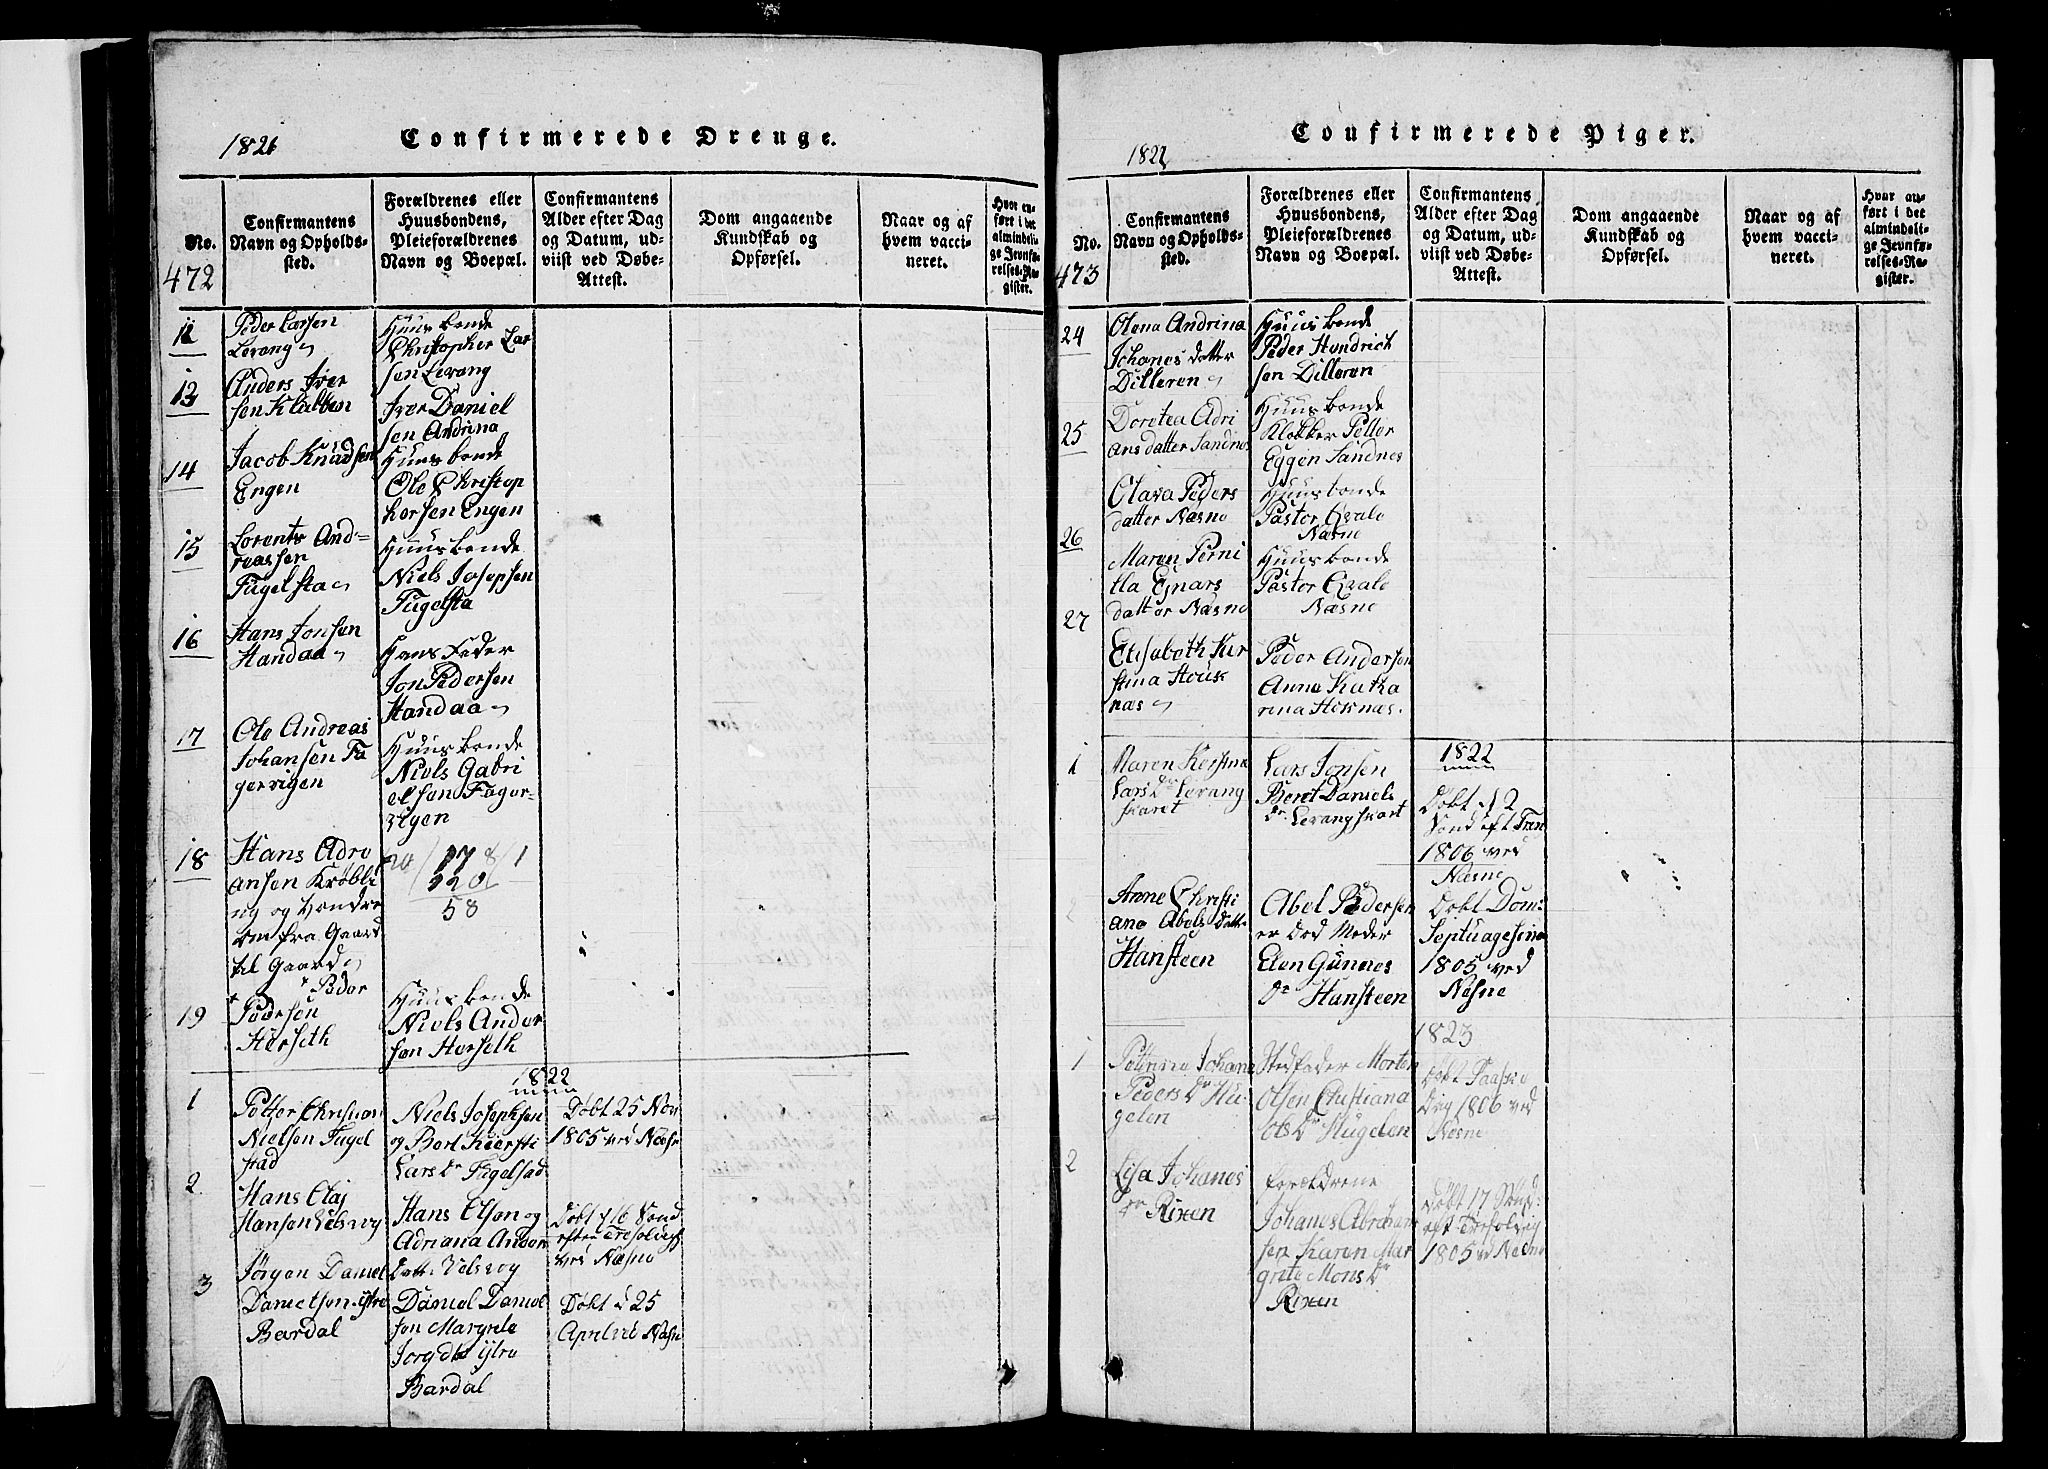 1821
Confirmerede Drenge.
No.
472
Confirmantens
Navn og Opholds-
sted.
Forældrenes eller
Huusbondens,
Pleieforældrenes
Navn og Boepæl.
Confirmantens
Alder efter Dag
og Datum, ud-
viist ved Døbe-
Attest.
Dom angaaende
Kundskab og
Opførsel.
Naar og af
hvem vacci-
neret.
Hvor an-
ført i det
almindeli-
ge Jevnfø-
relses-Re-
gister.
Peder Larsen
Levang
Huusbonde
Christopher Lar
sen Levang
13
Anders Iver
sen Klubben
Iver Daniel
sen Andrina
14
Jacob Knudsen
Engen
Huusbonde
Ole Christop
hersen Engen
15
Lorents And=
reassen
Fugelsta
Huusbonde
Niels Josepsen
Fugelsta
16
Hans Jonsen
Handaa
Hans Fader
Jon Pedersen
Handaa
17
Ole Andreas
Johansen Fa
gervigen
Huusbonde
Niels Gabri
elsen Fager-
vigen
18
Hans Adri
ansen Krøbli
ng og
om fra Gaard
til Gaard
20/178/1
120
58
19
Peder
Pedersen
Herseth
Huusbonde
Niels Ander
sen Herseth
1822
1
Petter
Nielsen Fugel
stad
Niels Josephsen
og Beret Kiersti
Lars Dr Fugelstad
Døbt 25 Nov
1805 ved Næsne
2
Hans Olai
Hansen
Hans Olsen og
Adriana Anders
Datt:
Døbt d 16 Sønd
efter
ved Næsne
3
Jørgen Daniel
Danielsen ytre
Bardal
Daniel Daniel
sen Margrete
ytre
Bardal
Døbt d 25
April ved Næsne
1821
Confirmerede Piger.
No.
473
Confirmantens
Navn og Opholds-
sted.
Forældrenes eller
Huusbondens,
Pleieforældrenes
Navn og Boepæl.
Confirmantens
Alder efter Dag
og Datum, ud-
viist ved Døbe-
Attest.
Dom angaaende
Kundskab og
Opførsel.
Naar og af
hvem vacci-
neret.
Hvor an-
ført i det
almindeli-
ge Jevnfø-
relses-Re-
gister.
24
Olena Andrina
Johanes datter
Dilleren
Huusbonde
Peder Hendrich
sen Dilleren
25
Doretea Adri
ansdatter Sandnes
Huusbonde
Klokker Petter
Eggen Sandnes
26
Olava Peders
datter Næsne
Huusbonde
Pastor Qvale
Næsne
27
Maren Perni
lla Ejnars
datter Næsne
Huusbonde
Pastor Qvale
Næsne
Elisabeth Kir
stina
næs
Peder Andersen
Anne Katha
rina
1822
1
Maren Kirstina
Lars Dr Levang
skaret
Lars Jonsen
Beret Daniels
Dr Levangskaret
Døbt d 2
Sønd eft Tren
1806 ved
Næsne
2
Anne Christi
ana Abels Datt
Hansteen
Abel Pedersen
er død Moder
Elen Gunnes
Dr Hansteen
Døbt Dom:
Septuagesima
1805 ved
Næsne
1823
1
Petrina Johana
Peders Dr Hu-
gelen
Stedfader Morten
Olsen Christiana
Ols Dr Hugelen
Døbt Paaske
Dag 1806 ved
Næsne
2
Lisa Johanes
Dr Rixen
Forældrene
Johanes Abraham
sen Karen Mar
grete Mons Dr
Rixen
Døbt 17 Sønd:
eft
1805 v Næsne